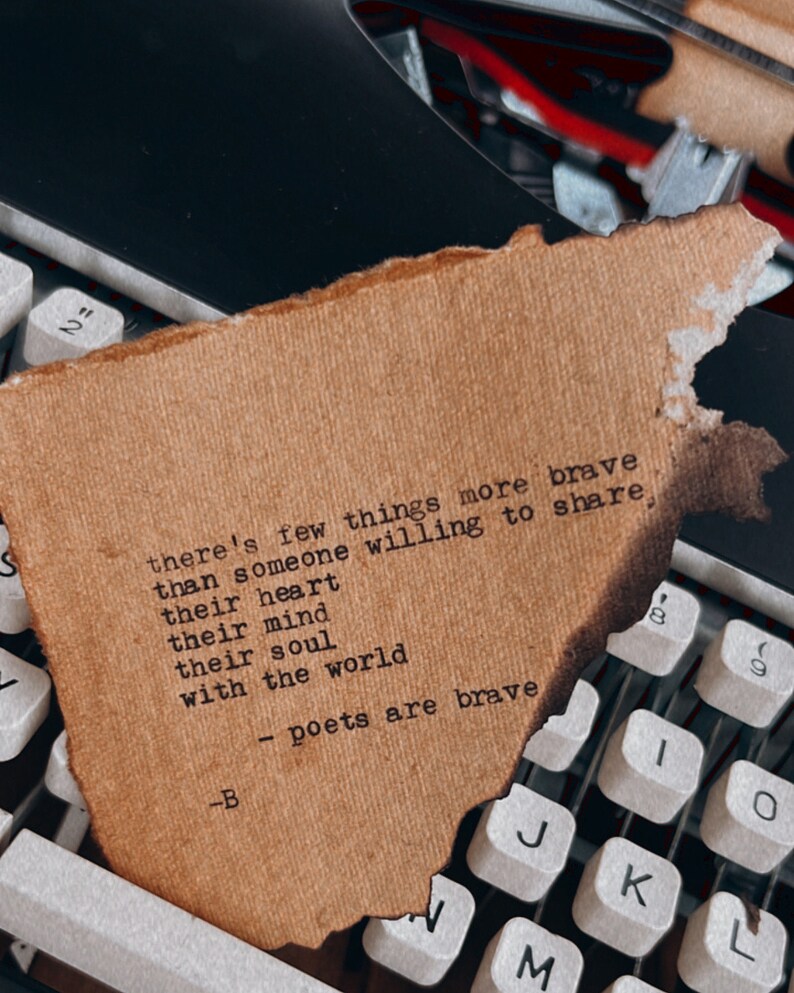 2"
there's few things more brave
than someone willing to share,
their heart
their mind
their soul
with the world
- poets are brave
-B
S
8'
( 9
I
O
J
K
L
N
M